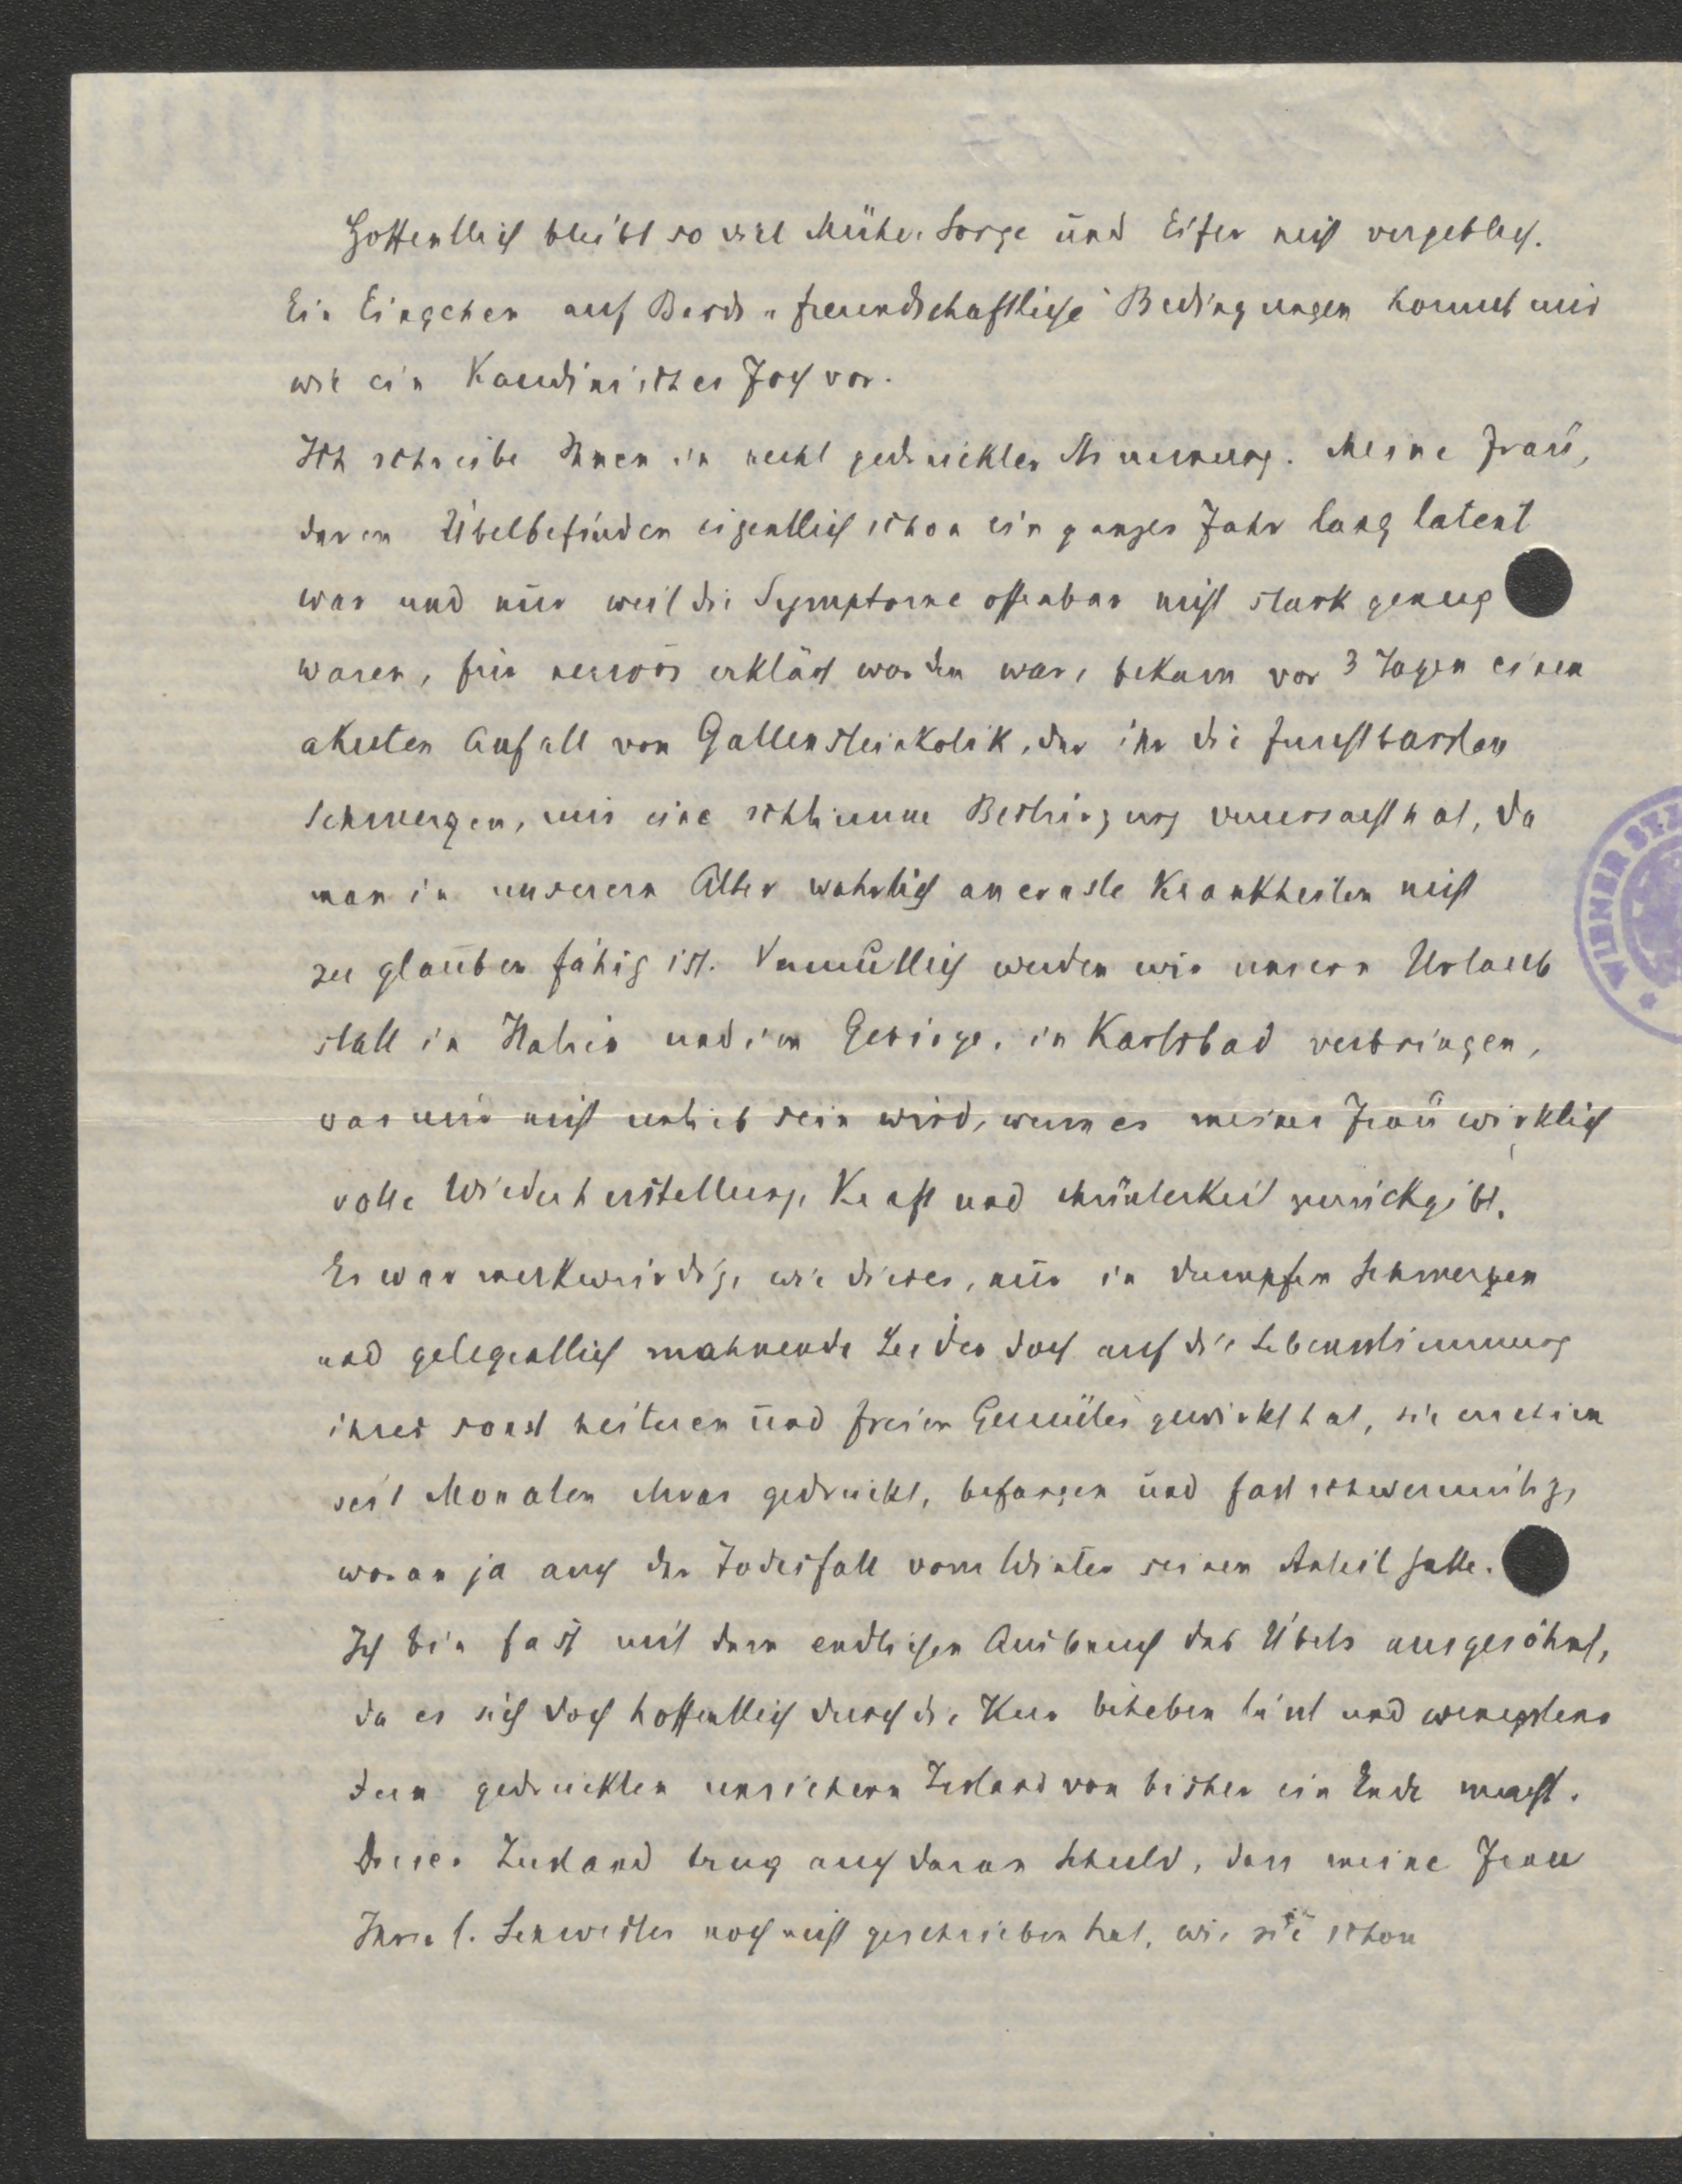 Hoffentlich bleibt so viel Mühe, Sorge und Eifer nicht vergeblich.
Ein Eingehen auf Bards „freundschaftliche" Bedingungen kommt mir
wie ein Kaudinisches Joch vor.
Ich schreibe Ihnen in recht gedrückter Stimmung. Meine Frau,
deren Übelbefinden eigentlich schon ein ganzes Jahr lang latent
war und nur weil die Symptome offenbar nicht stark genug
waren, für nervös erklärt worden war, bekam vor 3 Tagen einen
akuten Anfall von Gallensteinkolik, der ihr die furchtbarsten
Schmerzen, mir eine schlimme Bestürzung verursacht hat, da
man in unserem Alter wahrlich an ernste Krankheiten nicht
zu glauben fähig ist. Vermutlich werden wir unsern Urlaub
statt in Italien und im Gebirge, in Karlsbad verbringen,
was mir nicht unlieb sein wird, wenn es meiner Frau wirklich
volle Wiederherstellung, Kraft und Munterkeit zurückgibt.
Es war merkwürdig, wie dieses, nur in dumpfen Schmerzen
und gelegentlich mahnende Leiden doch auf die Lebensstimmung
ihres sonst heiteren und freien Gemütes gewirkt hat, sie erschien
seit Monaten etwas gedrückt, befangen und fast schwermütig,
woran ja auch der Todesfall vom Winter seinen Anteil hatte.
Ich bin fast mit dem endlichen Ausbruch des Übels ausgesöhnt,
da es sich doch hoffentlich durch die Kur beheben läßt und wenigstens
dem gedrückten unsichern Zustand von bisher ein Ende macht.
Dieser Zustand trug auch daran Schuld, dass meine Frau
Ihrer l. Schwester noch nicht geschrieben hat, wie sie schon
WIENER